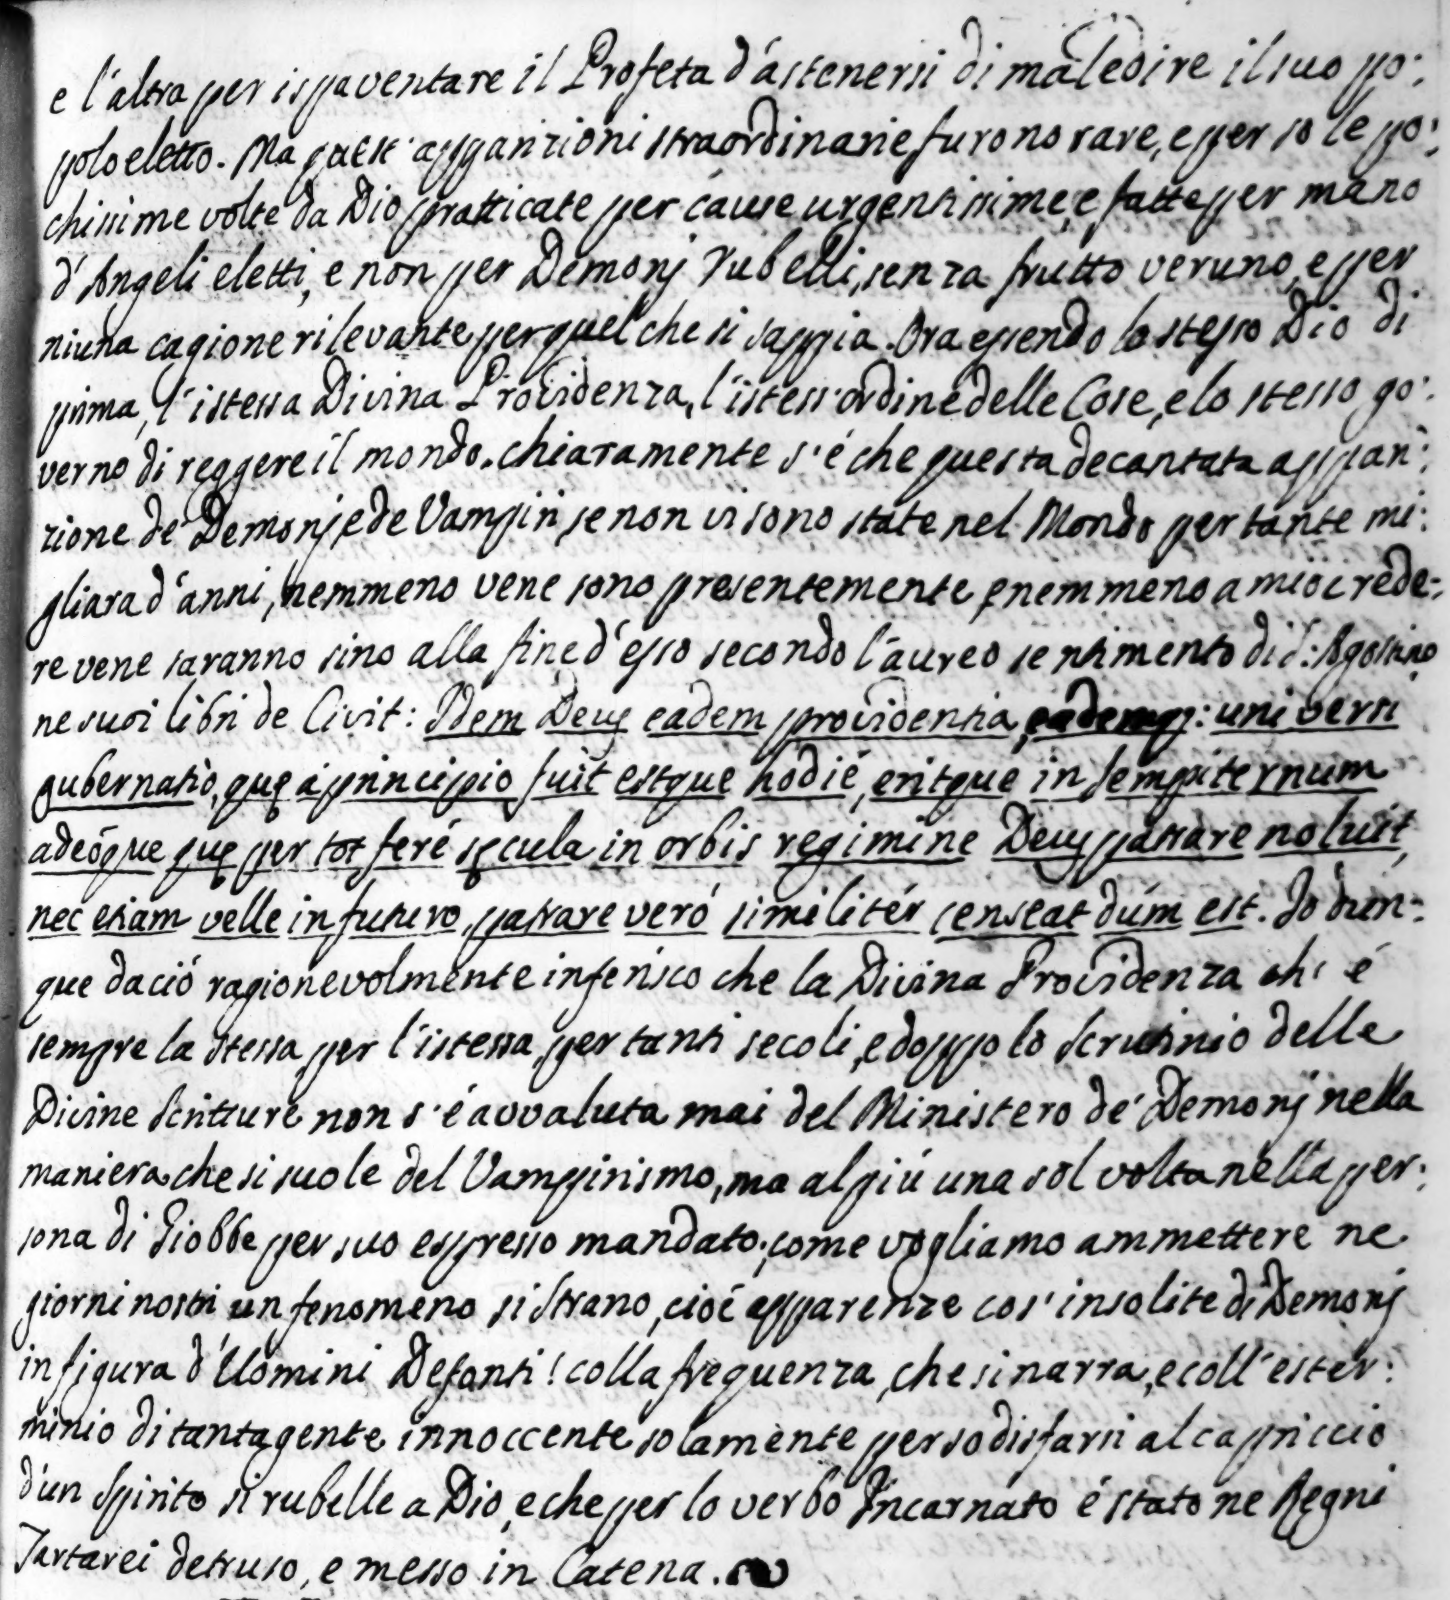 e l'altra per ispaventare il Profeta d'astenersi di maledire il suo po:
polo eletto. Ma quest' apparizioni straordinarie furono rare, e per so le po:
chissime volte da Dio pratticate per cause urgentissime, e fatte per mano
d'Angeli eletti, e non per Demonj rubelli, senza frutto veruno, e per
niuna cagione rilevante per quel che si sappia. Ora essendo lo stesso Dio di
prima, l'istessa Divina Providenza, l'istess'ordine delle Cose, e lo stesso go:
verno di reggere il mondo. chiaramente s'é che questa decantata appari:
zione de' Demonj, e de Vampiri, se non vi sono state nel Mondo per tante mi:
gliara d'anni, nemmeno vene sono presentemente, e nemmeno a mio crede:
re vene saranno sino alla fine d'esso secondo l'aureo sentimento di S: Agostino
ne suoi libri de Civit: Idem Deus eadem providentia, eademq: universi
gubernatio, quę á principio fuit estque hodié, eritque in sempiternum
adeóque quę per tot feré sęcula in orbis regimine Deus patrare noluit,
nec etiam velle in futuro, patrare veró similitér censeat dúm est. Io dun:
que dació ragionevolmente inferisco che la Divina Providenza ch' é
sempre la stessa, per l'istessa, per tanti secoli, e doppo lo Scrutinio delle
Divine Scritture non s'é avvaluta mai del Ministero de' Demonj nella
maniera che si suole del Vampirismo, ma al piú una sol volta nella per:
sona di Giobbe per suo espresso mandato; come vogliamo ammettere ne
giorni nostri un fenomeno si strano, cioé apparenze cos' insolite di Demonj
in figura d'Uomini Defonti! colla frequenza, che si narra, e coll'ester:
minio di tanta gente innoccente solamente per sodisfarsi al capriccio
d'un Spirito si rubelle a Dio, e che per lo verbo Incarnato é stato ne Regni
Tartarei detruso, e messo in Catena.